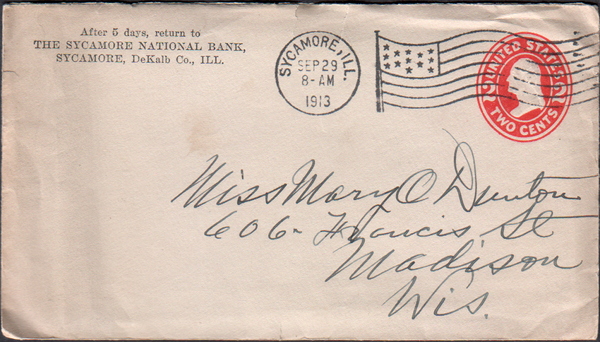 After 5 days, return to
THE SYCAMORE NATIONAL BANK,
SYCAMORE, DeKalb Co., ILL.
SYCAMORE, ILL.
SEP 29
8-AM
1913
UNITED STATES
TWO CENTS
Miss Mary C Dunton
606- Francis St
Madison
Wis.